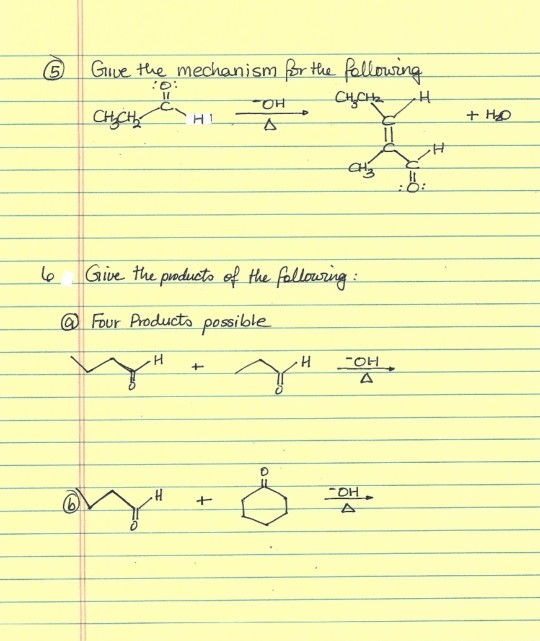 ⑤ Give the mechanism for the following
:O:
CH₃CH₂ C H ⁻OH Δ CH₃CH₂ C H + H₂O
C H
CH₃ C
:O:
6 Give the products of the following:
ⓐ Four Products possible
H + H ⁻OH
O O Δ
O
ⓑ H + ⁻OH
O Δ